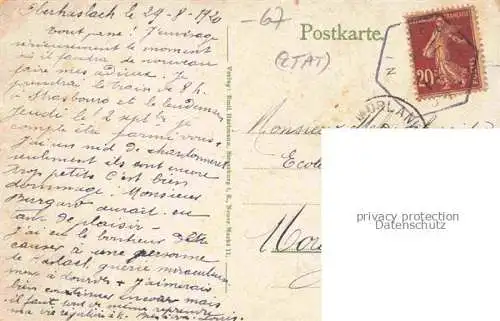 Oberhaslach le 29-8-1920
Vous pane ! J'envisage
sérieusement le moment
où il faudra de nouveau
faire mes adieux. Je
prendrai le train de 8 h.
à Strasbourg et le lendemain
Jeudi le 2 sept bre je
compte être parmi vous.
J'ai un nid de chardonneret
seulement ils sont encore
trop petits C'est bien
dommage. Monsieur
aurait eu
tant de plaisir -
J'ai eu le bonheur d'être
causer à une personne
de guérie miraculeuse
à Lourdes + J'aimerais
bien continuer encore mais
il faut tout de même reprendre
ma vie régulière. Louis
-67
(ETAT)
Postkarte
Verlag: Emil Hartmann, Strassburg i. E., Neuer Markt 11.
Monsieur
Ecole
privacy protection
Datenschutz
FRANÇAISE
20c
POSTES